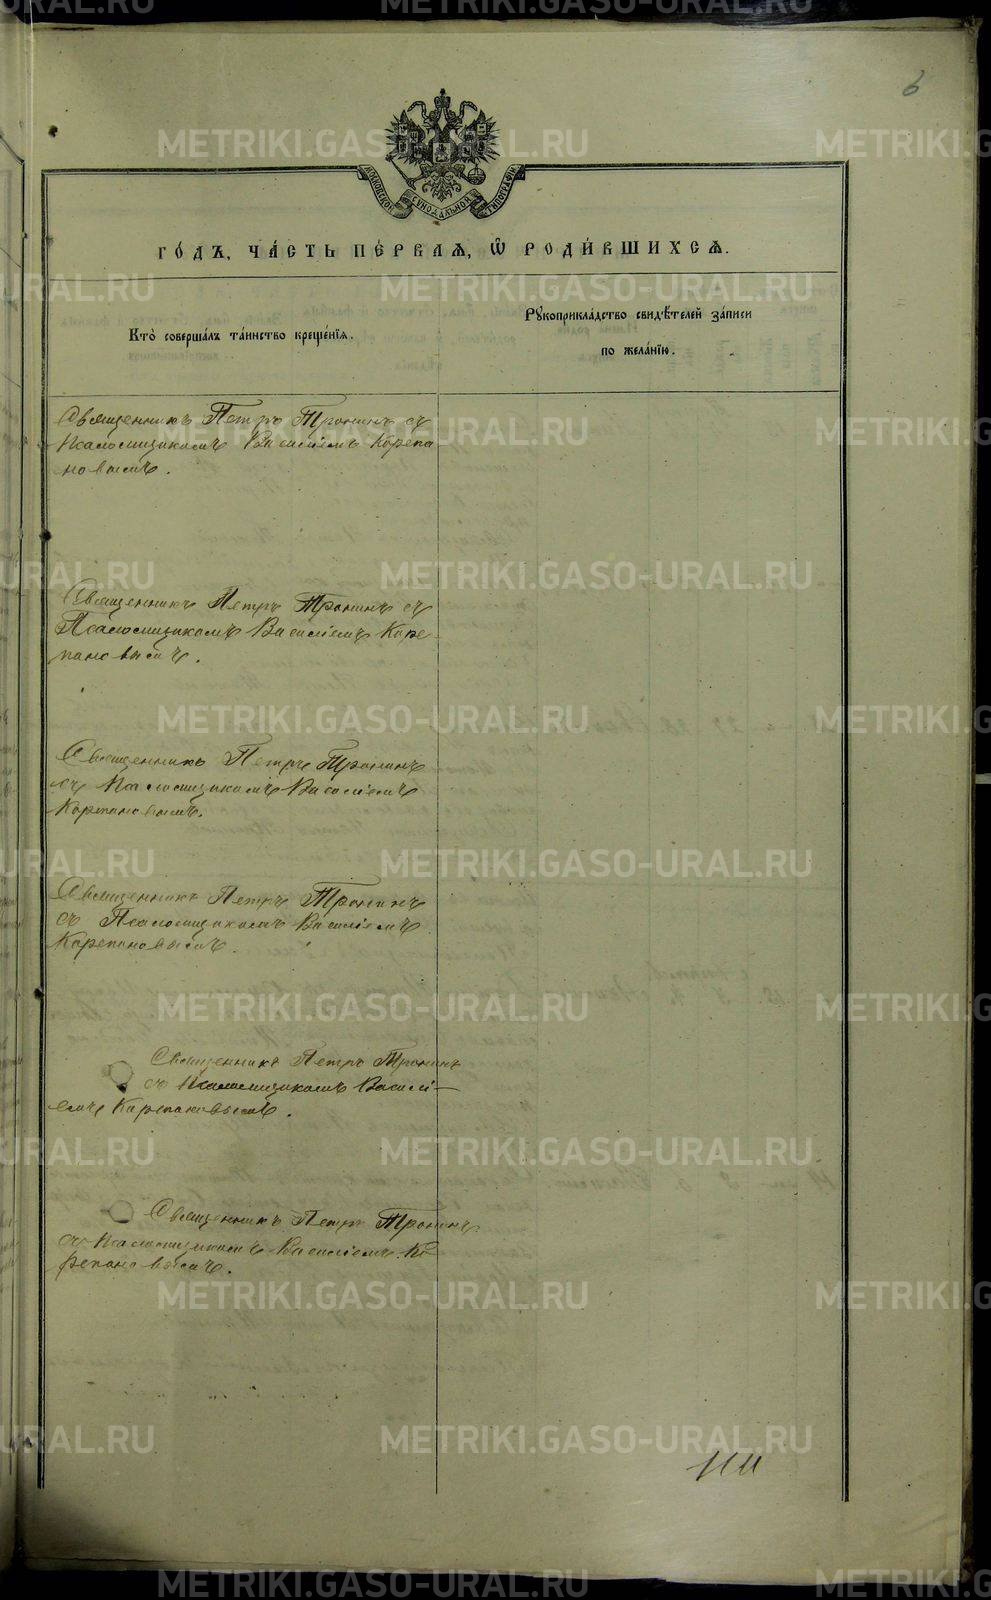 6
МОСКОВСКОЙ СѴНОДАЛЬНОЙ ТИПОГРАФІИ
ГО́ДЪ, ЧА́СТЬ ПЕ́РВАѦ, Ѽ РОДИ́ВШИХСѦ.
Кто̀ соверша́лъ та́инство креще́нїѧ.
Рꙋкоприкла́дство свидѣ́телей за́писи
по жела́нїю.
Священникъ Петръ Тронинъ съ
Псаломщикомъ Василіемъ Корепа
новымъ.
Священникъ Петръ Тронинъ съ
Псаломщикомъ Василіемъ Коре-
пановымъ.
Священникъ Петръ Тронинъ
съ Псаломщикомъ Василіемъ
Корепановымъ.
Священникъ Петръ Тронинъ
съ Псаломщикомъ Василіемъ
Корепановымъ.
Священникъ Петръ Тронинъ
съ Псаломщикомъ Василі-
емъ Корепановымъ.
Священникъ Петръ Тронинъ
съ Псаломщикомъ Василіемъ Ко
репановымъ.
METRIKI.GASO-URAL.RU